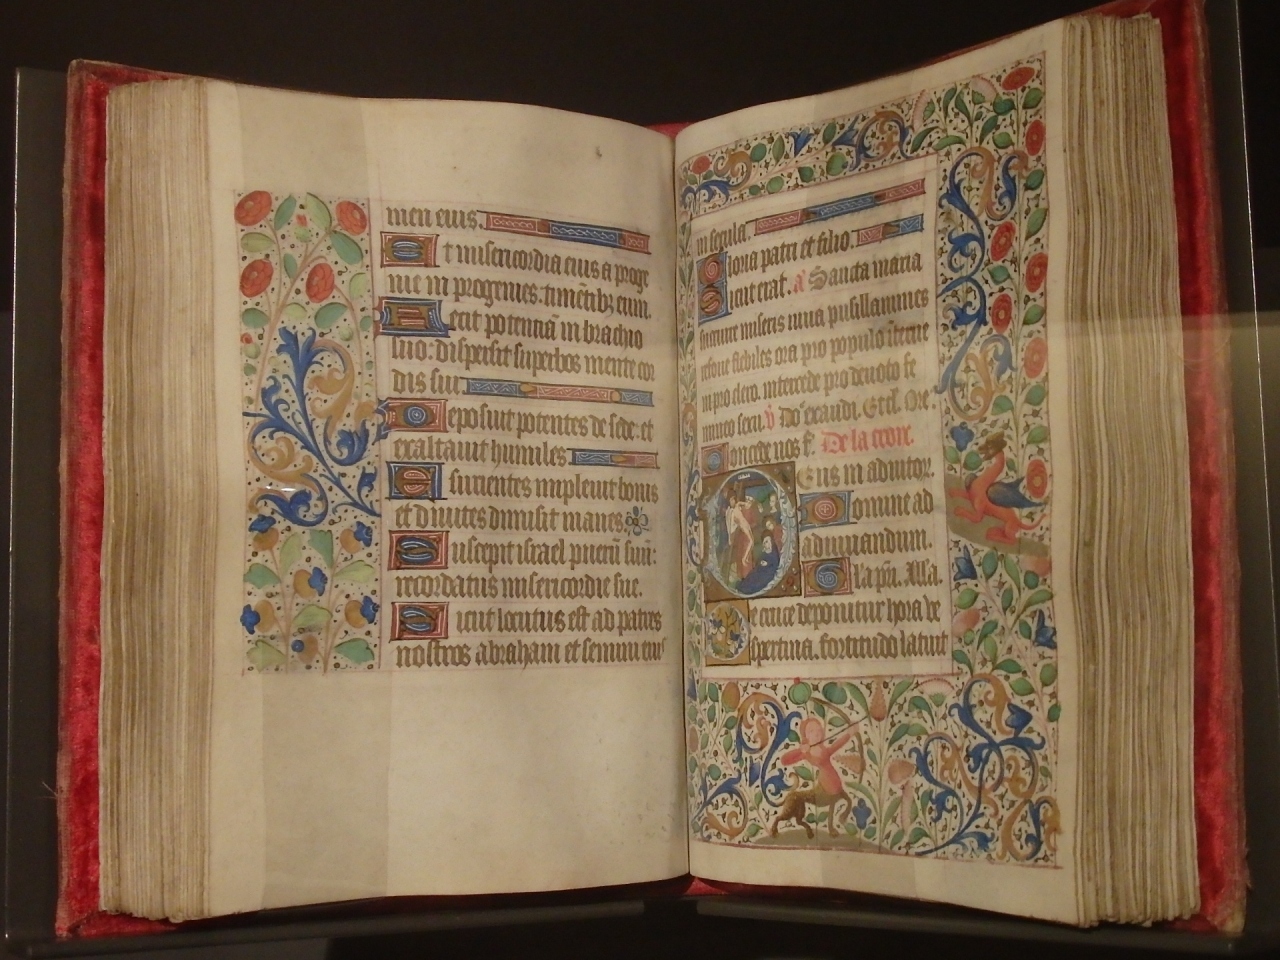 men eius.
Et misericordia eius a proge
nie in progenies. timētibȝ eum.
Fecit potentiā in brachio
suo: dispersit superbos mente cor
dis sui
Deposuit potentes de sede: et
exaltauit humiles
Esurientes impleuit bonis
et diuites dimisit inanes
Suscepit israel puerū suū:
recordatus misericordie sue.
Sicut locutus est ad patres
nostros abraham et semini eius
in secula.
Gloria patri et filio.
Sicut erat. a Sancta maria
succurre miseris iuua pusillanimes
refoue flebiles ora pro populo interue
ni pro clero. intercede pro deuoto fe
mineo sexu. v Dn̄e exaudi. Et cl. Ore.
Concede nos f. De la croix.
Deus in adiutor.
Domine ad
adiuuandum
Gl̄a pr̄i. Alla.
De cruce deponitur hora ve
spertina. fortitudo latuit